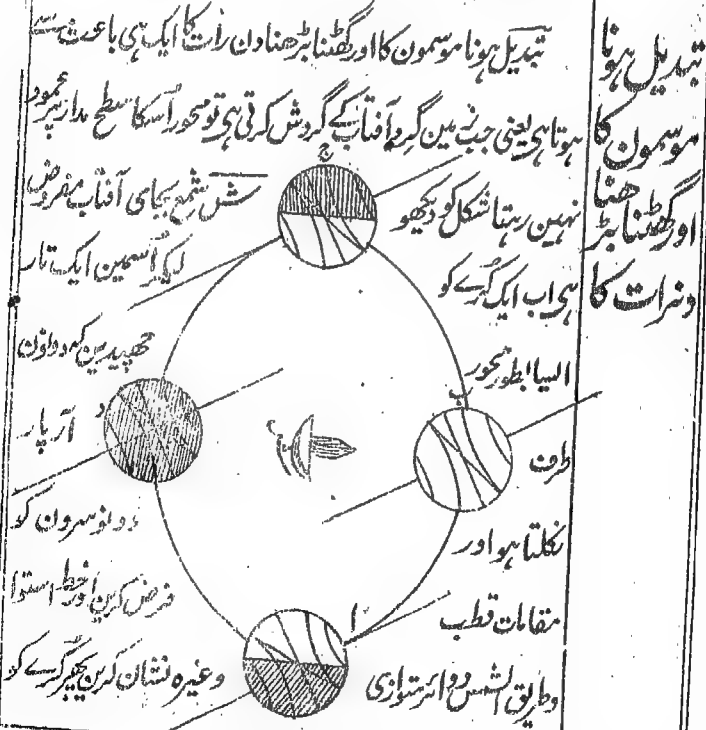 تبدیل ہونا
موسمون کا
اور گھٹنا بڑھنا
دنرات کا
تبدیل ہونا موسمون کا اور گھٹنا بڑھنا دن رات کا ایک ہی باعث سے
ہوتا ہی یعنی جب زمین گرد آفتاب کے گردش کرتی ہی تو محور اسکا سطح مدار پر عمود
نہین رہتا شکل کو دیکھو ج ش شمع بجای آفتاب مفروض
ہی اب ایک کُرے کو لیکر اُسمین ایک تار
ایسا بطور محور چھیدین کہ دونون
طرف آر پار
نکلتا ہو اور دونو سرون کو
مقامات قطب فرض کرین اور خط استوا
وطریق الشمس دوائر متوازی وغیرہ نشان کرین پھر کُرے کو
ب
د
ا